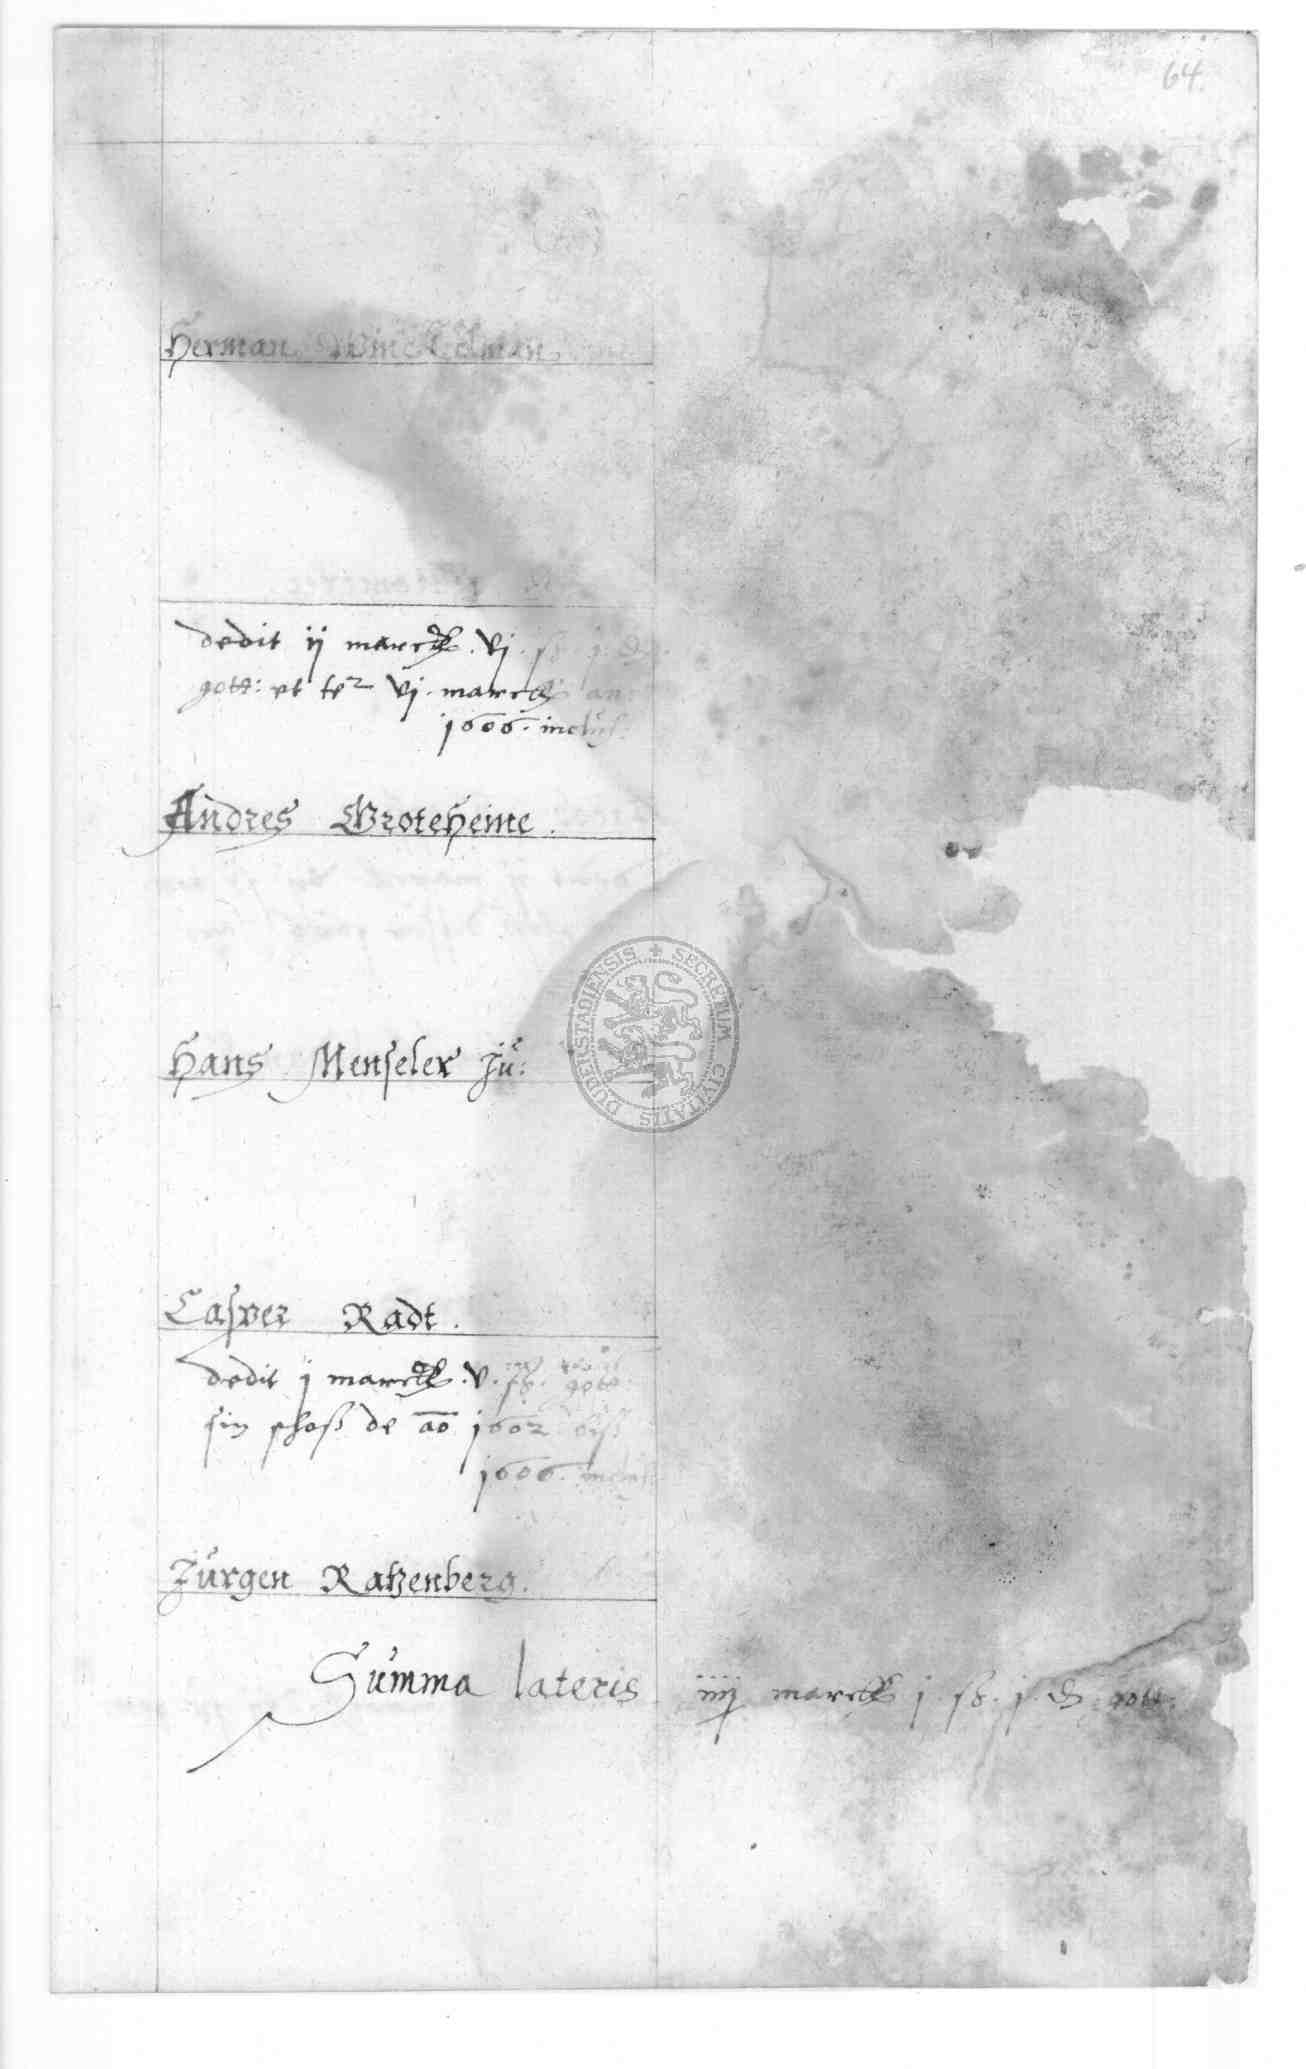 64.
Herman Winckelman
dedit ij marck . vj . ß . j . ₰
gott: et ter vj . marck an
1606. inclus:
Andres Groteheine .
SECRETUM CIVITATIS DUDERSTADIENSIS
Hans Menseler Jü:
Casper Radt .
dedit j marck . v . ß . gott
sin schoß de ao 1602 biß
1606. inclus
Jürgen Ratzenberg .
Summa lateris iiij marck j . ß . j . ₰ gott: